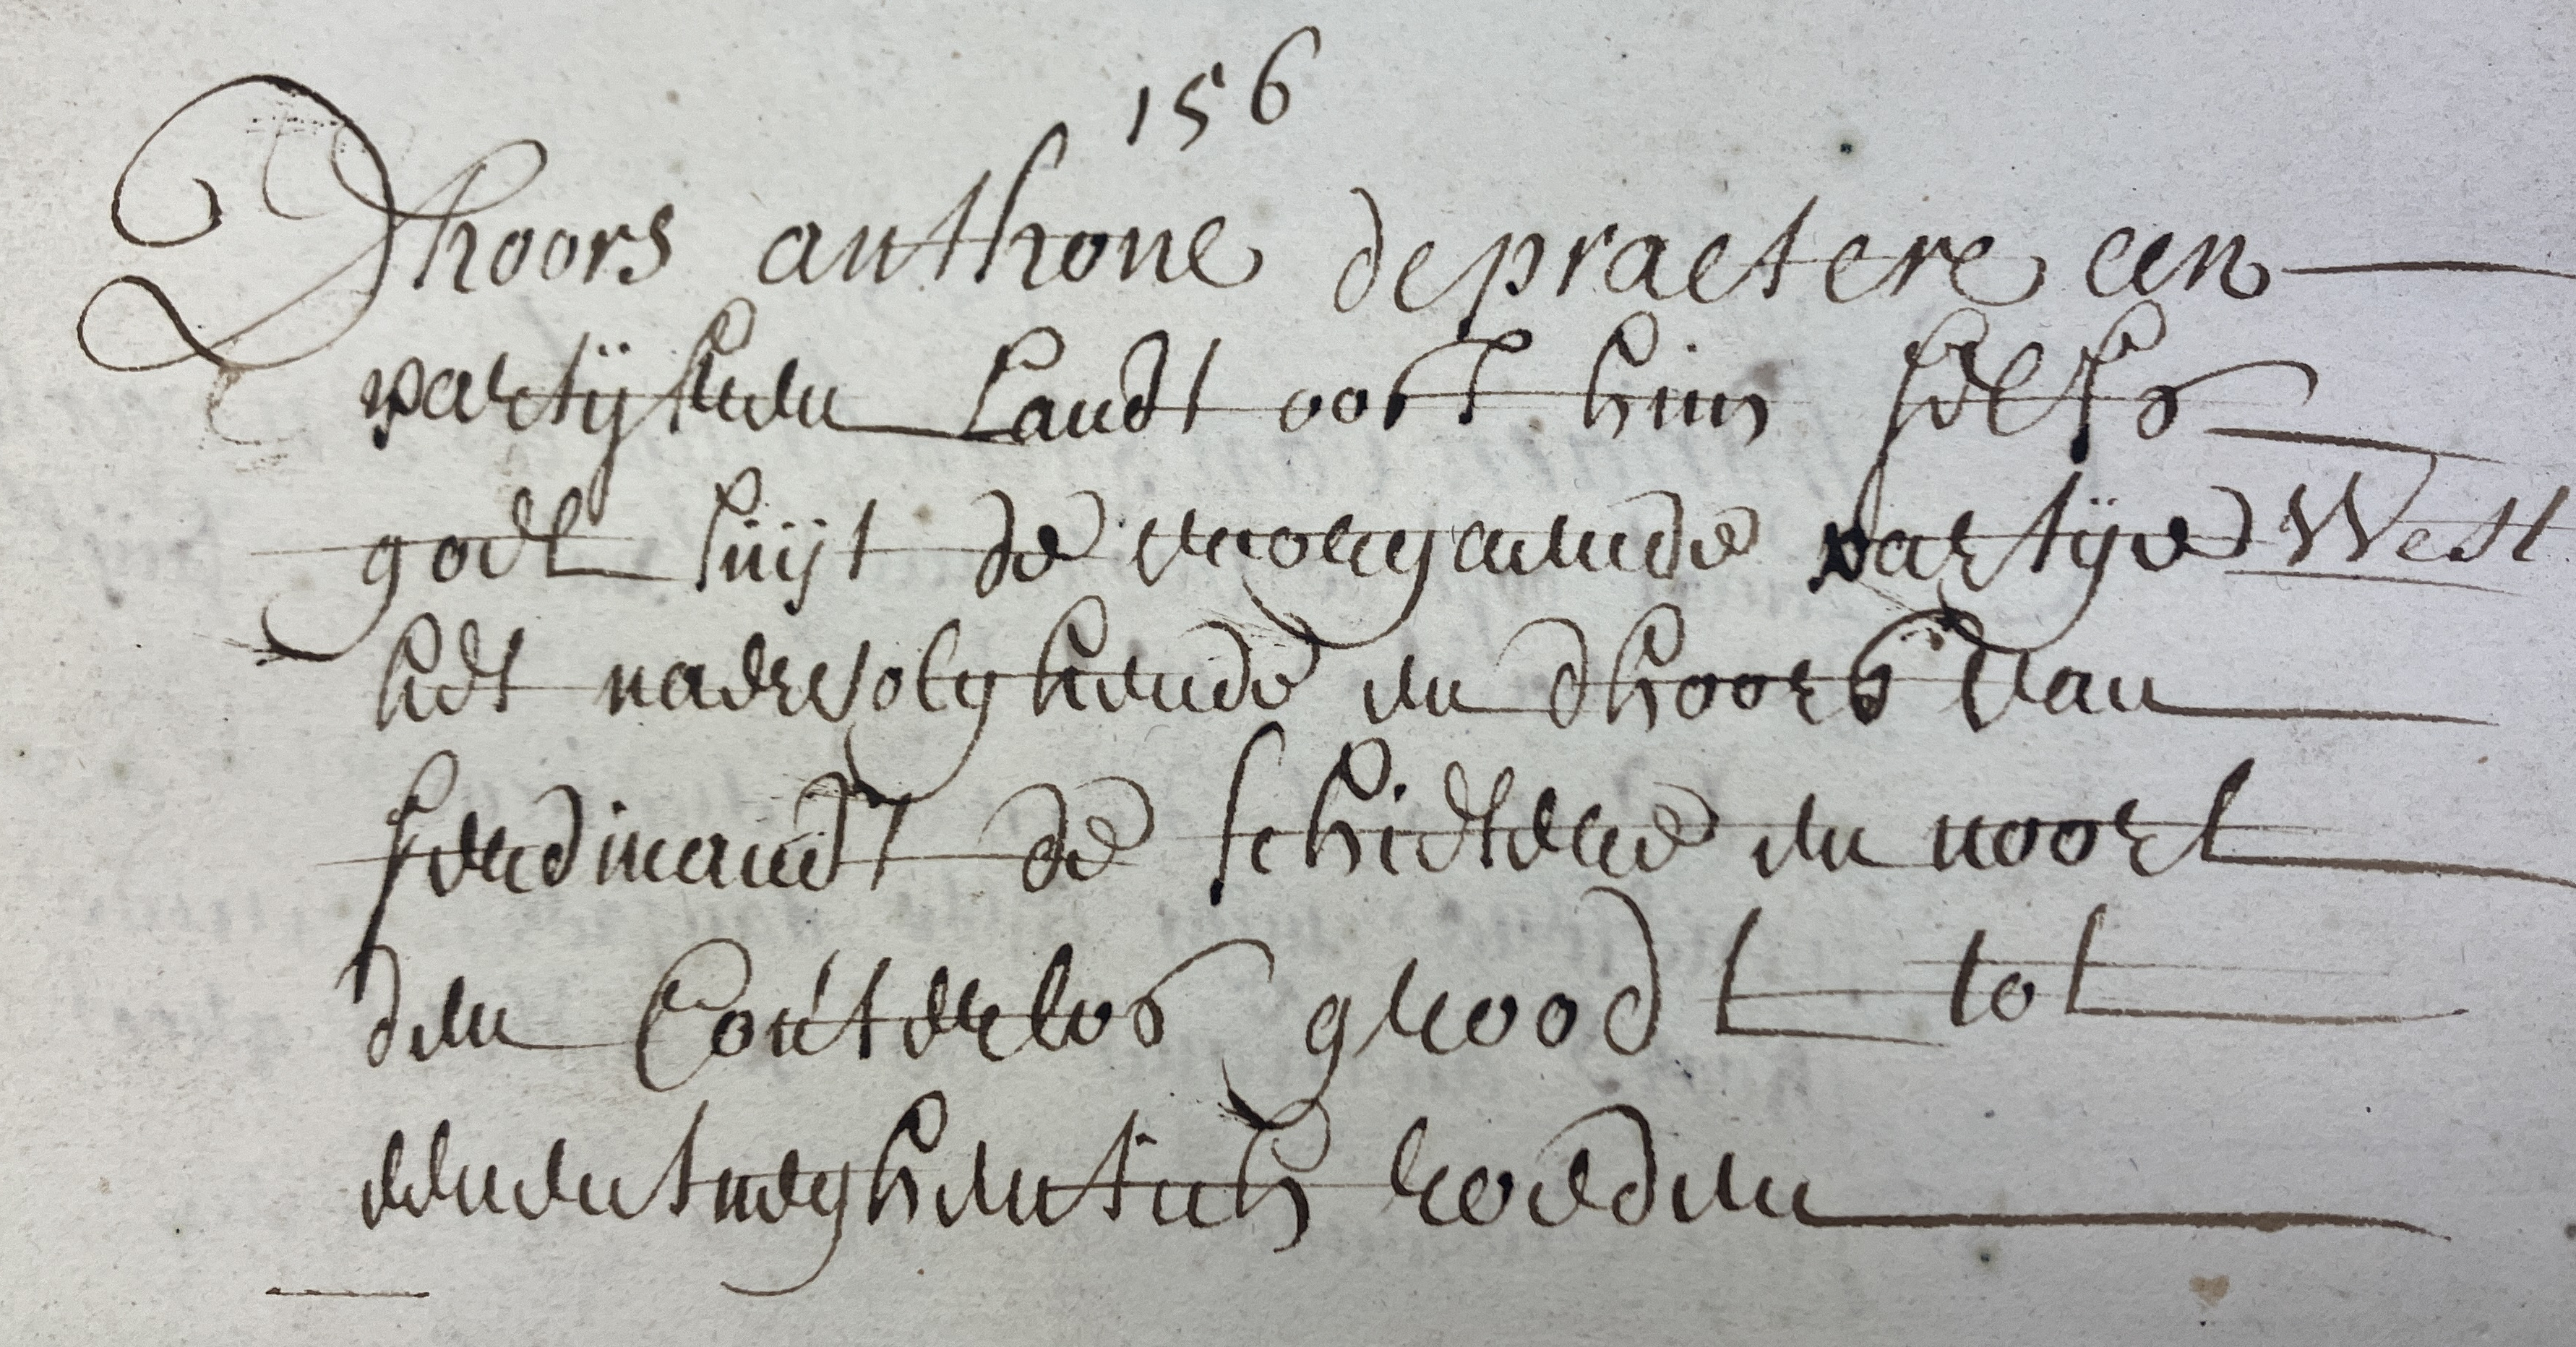 156
Dhoors anthone depraetere een
partijken Landt oost hun selfs
goet suijt de voorgaende partije West
het naervolghende en dhoors van
ferdinandt de schietere en noort
den Couterlos groodt tot
eenentneghentich roeden